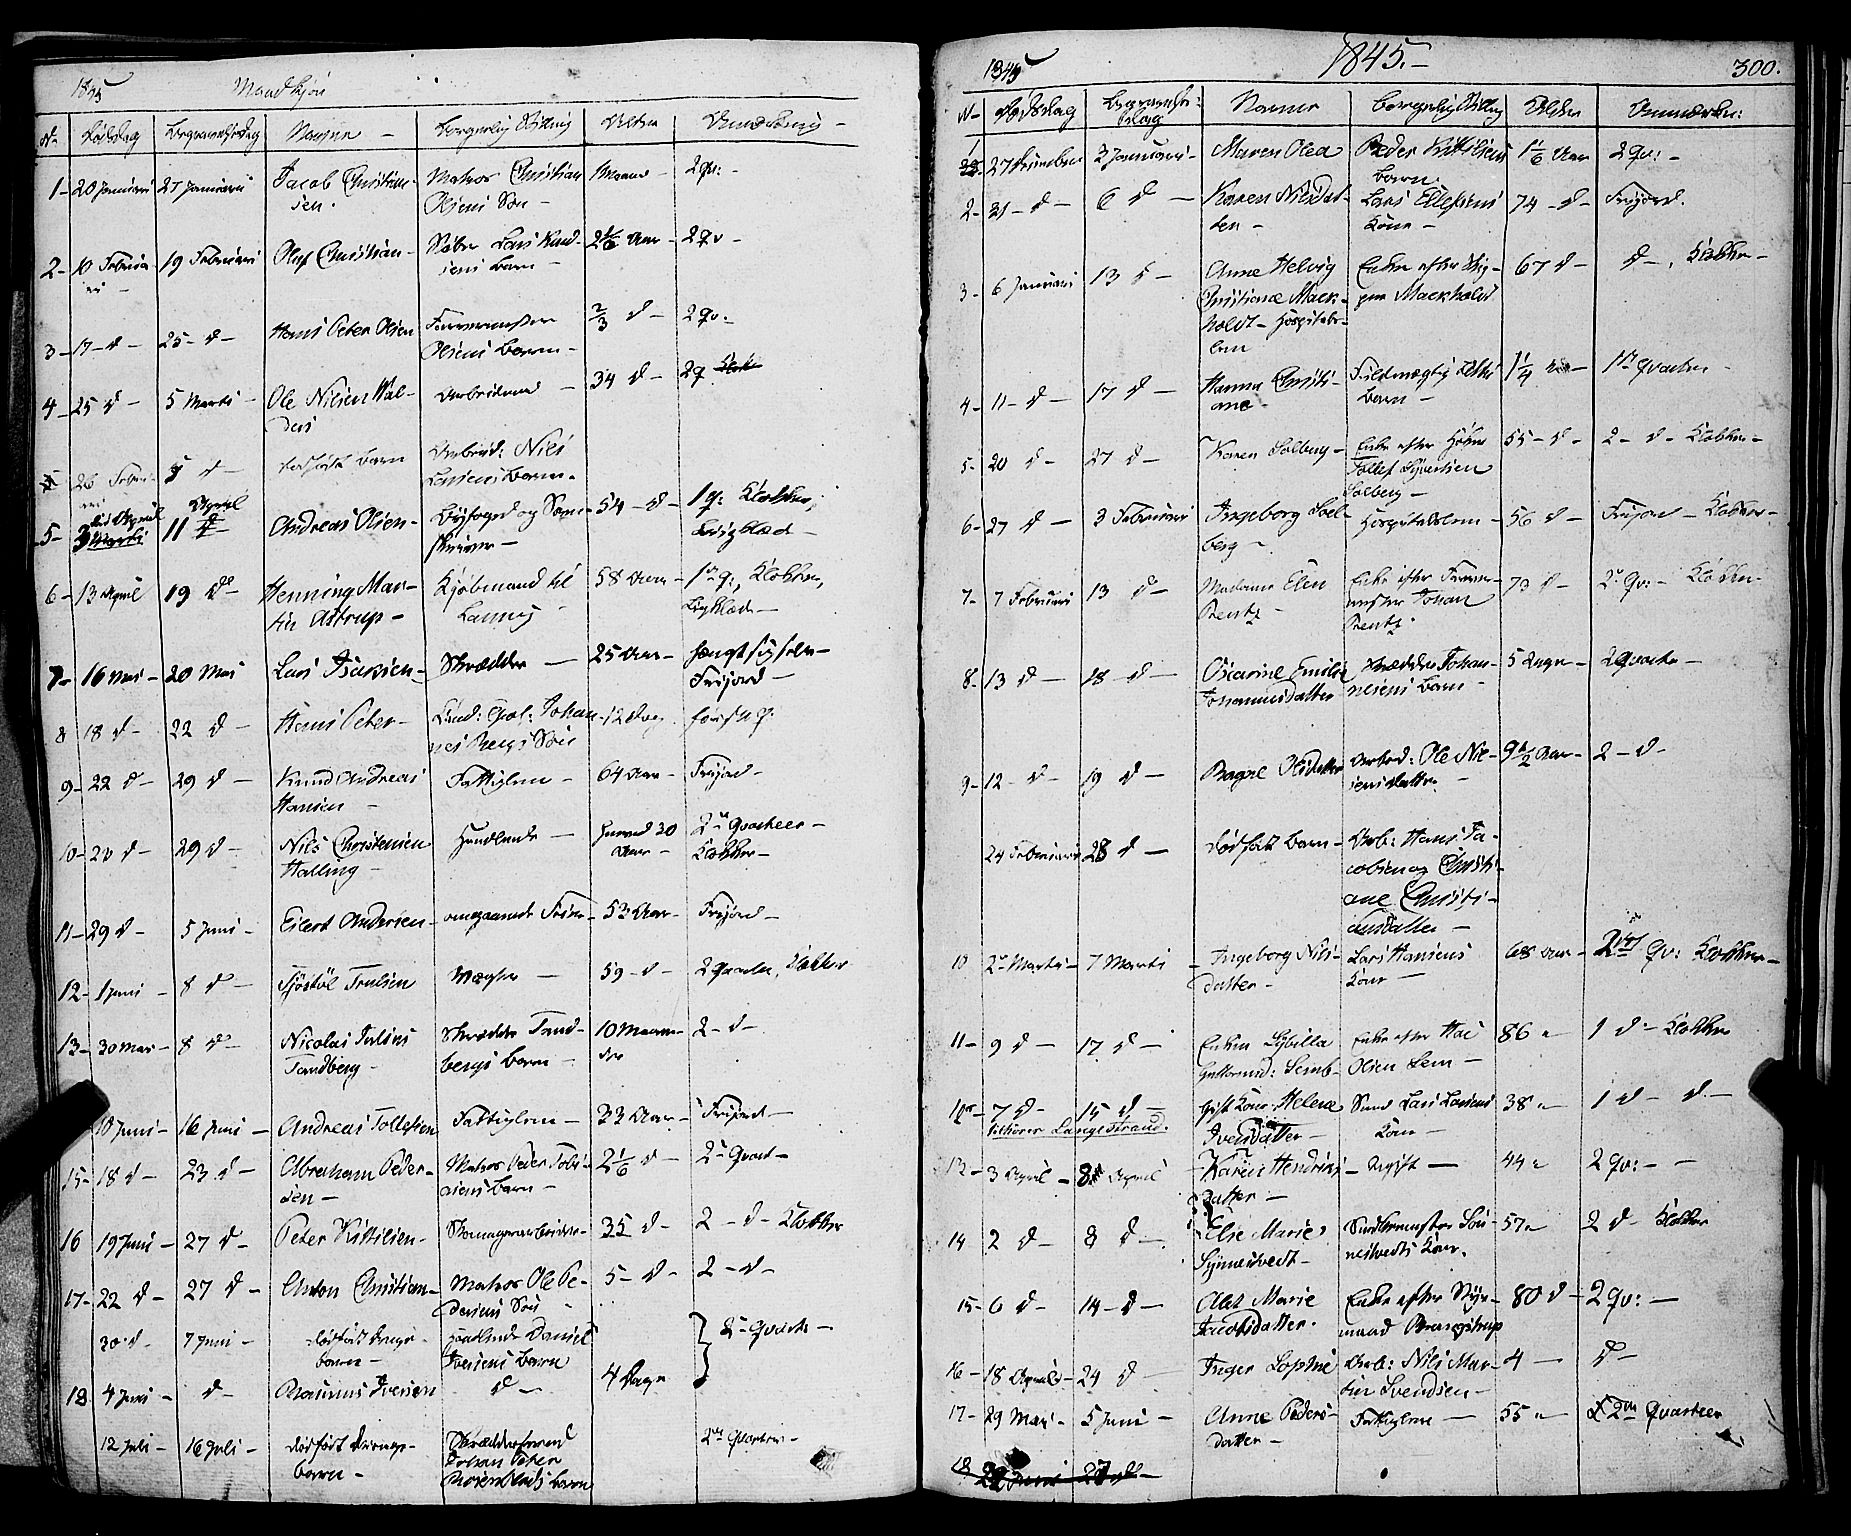 1845
Mandkjøn
N-
Dødsdag
Begravelsesdag
Navne -
Borgerlig Stilling
Alder
1 - 20 Januari
27 Januarii
Jacob Christian-
sen.
Matros Christian
Olsens Søn -
1 Maaned -
2 qv: -
2 - 10 Februa
rii -
19 Februarii
Oluf Christian -
Lars Knud-
sens Barn -
2 1/6 Aar -
2 qv -
3 - 17 - d -
25 - d -
Hans Peter Olsen
Farvermester
Olsens Barn -
2/3 d -
2 qv: -
4 - 25 d -
5 Marti -
Ole Nielsen Wal-
ders
Arbeidsmand -
34 d -
2 q
26 Febru-
rii
5 d -
dødfødt Barn
Arbeid: Nils
Larsens Barn -
5 -
3 April
11 April
Andreas Olsen -
Byfoged og Soren-
skriver -
54 - d -
1 q: Klokker,
Liigklæde -
6 - 13 April
19 d -
Henning Mar-
tin Astrup -
Kjøbmand til
Laurvig -
58 Aar -
1ste q:, Klokker,
Ligklæde -
7 - 16 Mai -
20 Mai
Lars Isaksen -
Skrædder -
25 Aar -
hængt sig selv -
Frijord -
8 18 d -
22 d -
Hans Peter -
Johan-
nes Bergs Søn
12 Dage
første q:
9 - 22 d -
29 d -
Knud Andreas
Hansen -
Fattiglem -
64 Aar -
Frijord -
10 - 20 d -
29 d -
Nils Christensen
Halling -
Handlende -
30
Aar -
2 Quarteer -
Klokker -
11 - 29 d -
5 Juni -
Eilert Andersen -
53 Aar -
Frijord -
12 - 1 Juni -
8 d -
Sjøstøl Trulsen
Vægter -
59 - d -
2 Quarter, Klokker
13 - 30 Mai -
8 d -
Nicolai Julius
Tandberg -
Skrædder Tand-
bergs Barn -
10 Maane-
der
2 - d -
10 Juni -
16 Juni -
Andreas Tollefsen
Fattiglem -
33 Aar -
Frijord -
15 - 18 d -
23 d -
Abraham Peder-
sen -
Matros Peder Tobi-
asens Barn -
2 1/6 d -
2 Quart -
16 19 Juni -
27 d -
Peter Kittilsen -
Skomagerarbeider -
35 d -
2 - d - Klokker
17 - 22 d -
27 d -
Anton Christian -
Matros Ole Pe-
dersens Søn -
5 - d -
2 - d -
30 d -
7 Juni -
dødfødt Drenge-
barn -
Daniel
Iversens Barn
2 Quarter -
18 4 Juni -
d -
Rasmus Iversen
d -
4 Dage
12 Juli -
16 Juli -
dødfødt Drenge-
barn -
Skræddersvend
Johan Peter
Barn
2 Quarteer -
1845
1845. -
300.
N -
Dødsdag
Begravelses-
dag
Navne
Borgerlig Stilling
Alder
Anmærkn:
1
27 December
2 Januarii -
Maren Olea
Peder Kittilsens
Barn.
1 1/6 Aar
2 qv: -
2 - 31 - d -
6 d -
Karen Nilsdat-
ter -
Lars Ellefsens
Kone -
74 - d -
Frijord.
3 - 6 Januari
13 d -
Anne Helvig
Christiane Mack-
holdt - Hospitals-
lem
Enke efter Skip-
per Mackholdt
67 d -
d -, Klokker -
4 - 11 - d -
17 d -
Hanna Christi-
ane -
Fuldmægtig
Barn -
1 1/4 Aar -
1ste Quarteer -
5 - 20 d -
27 d -
Karen Solberg -
Enke efter
Tollef Syvertsen
Solberg -
55 - d -
2 - d - Klokker -
6 - 27 d -
3 Februarii
Ingeborg Sol-
berg -
Hospitalslem -
56 d -
Frijord - Klokker -
7 - 7 Februari
13 d -
Madame Elen
Rentz -
Enke efter Farver-
mester Johan
Rentz
73 d -
2 qv: - Klokker -
8 - 13 d -
18 d -
Oscarine Emilie
Johannesdatter
Skrædder Johan-
nesens Barn -
5 Dage -
2 Quarter -
9 - 12 - d -
19 d -
Ragel Olsdatter
Arbeid: Ole Nie-
lsens Datter -
9 1/2 Aar -
2 - d -
24 Februarii
28 d -
dødfødt Barn -
Arb: Hans Ja-
cobsen og Christi-
ane Christi-
ansdatter -
10 2 Marti -
7 Marti
Ingeborg Nils-
datter -
Lars Hansens
Kone -
68 Aar -
2 qv: Klokker -
11 - 9 d -
17 d -
Enken Sybilla
Guttormsd: Semb -
Enke efter
Olsen Sem -
86 "
1 d - Klokker
12 - 7 d -
15 d -
gift Kone Helene
Iversdatter -
Lars Larsens
Kone -
38 "
1 d - d -
tilhører Langestrand.
13 - 3 April -
8 April
Karen Hendriks-
datter -
Ugift -
44 "
2 qv: - -
14 2 d -
8 d -
Else Marie
Synnestvedt -
Snedkermester Syn-
nestvedts Kone.
57 "
2 d - Klokker
15 - 6 d -
14 - d -
Alet Marie
Jacobsdatter -
Enke efter Styr-
mand
80 d -
2 qv: -
16 - 18 Aprils -
24 d -
Inger Sophie
Arb: Nils Mar-
tin Svendsen -
4 -
d -
17 - 29 Mai -
5 Juni -
Anne Peders-
datter -
Fattiglem -
55 "
2 Quarteer
18